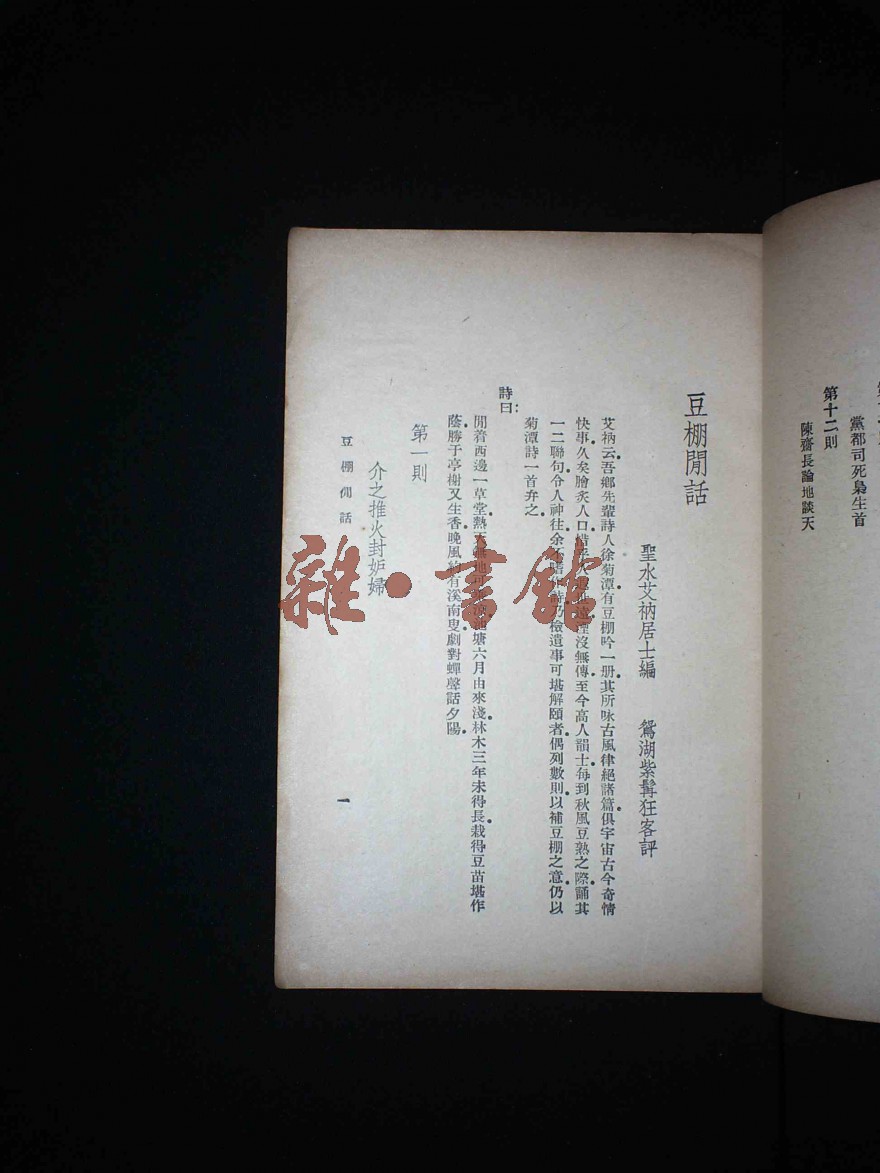 黨都司死梟生首
第十二則
陳齋長論地談天
豆棚閒話
聖水艾衲居士編　鴛湖紫髯狂客評
艾衲云。吾鄉先輩詩人徐菊潭有豆棚吟一册。其所咏古風律絕諸篇。俱宇宙古今奇情
快事。久矣膾炙人口。惜乎人遠。湮沒無傳。至今高人韻士。每到秋風豆熟之際。誦其
一二聯句。令人神往。余不嗜作詩。乃檢遺事可堪解頤者。偶列數則。以補豆棚之意。仍以
菊潭詩一首弁之。
詩曰：
閒着西邊一草堂。熱天無地可乘涼。池塘六月由來淺。林木三年未得長。栽得豆苗堪作
蔭。勝于亭榭又生香。晚風約有溪南叟。劇對蟬聲話夕陽。
第一則
介之推火封妬婦
豆棚閒話
一
雜·書館